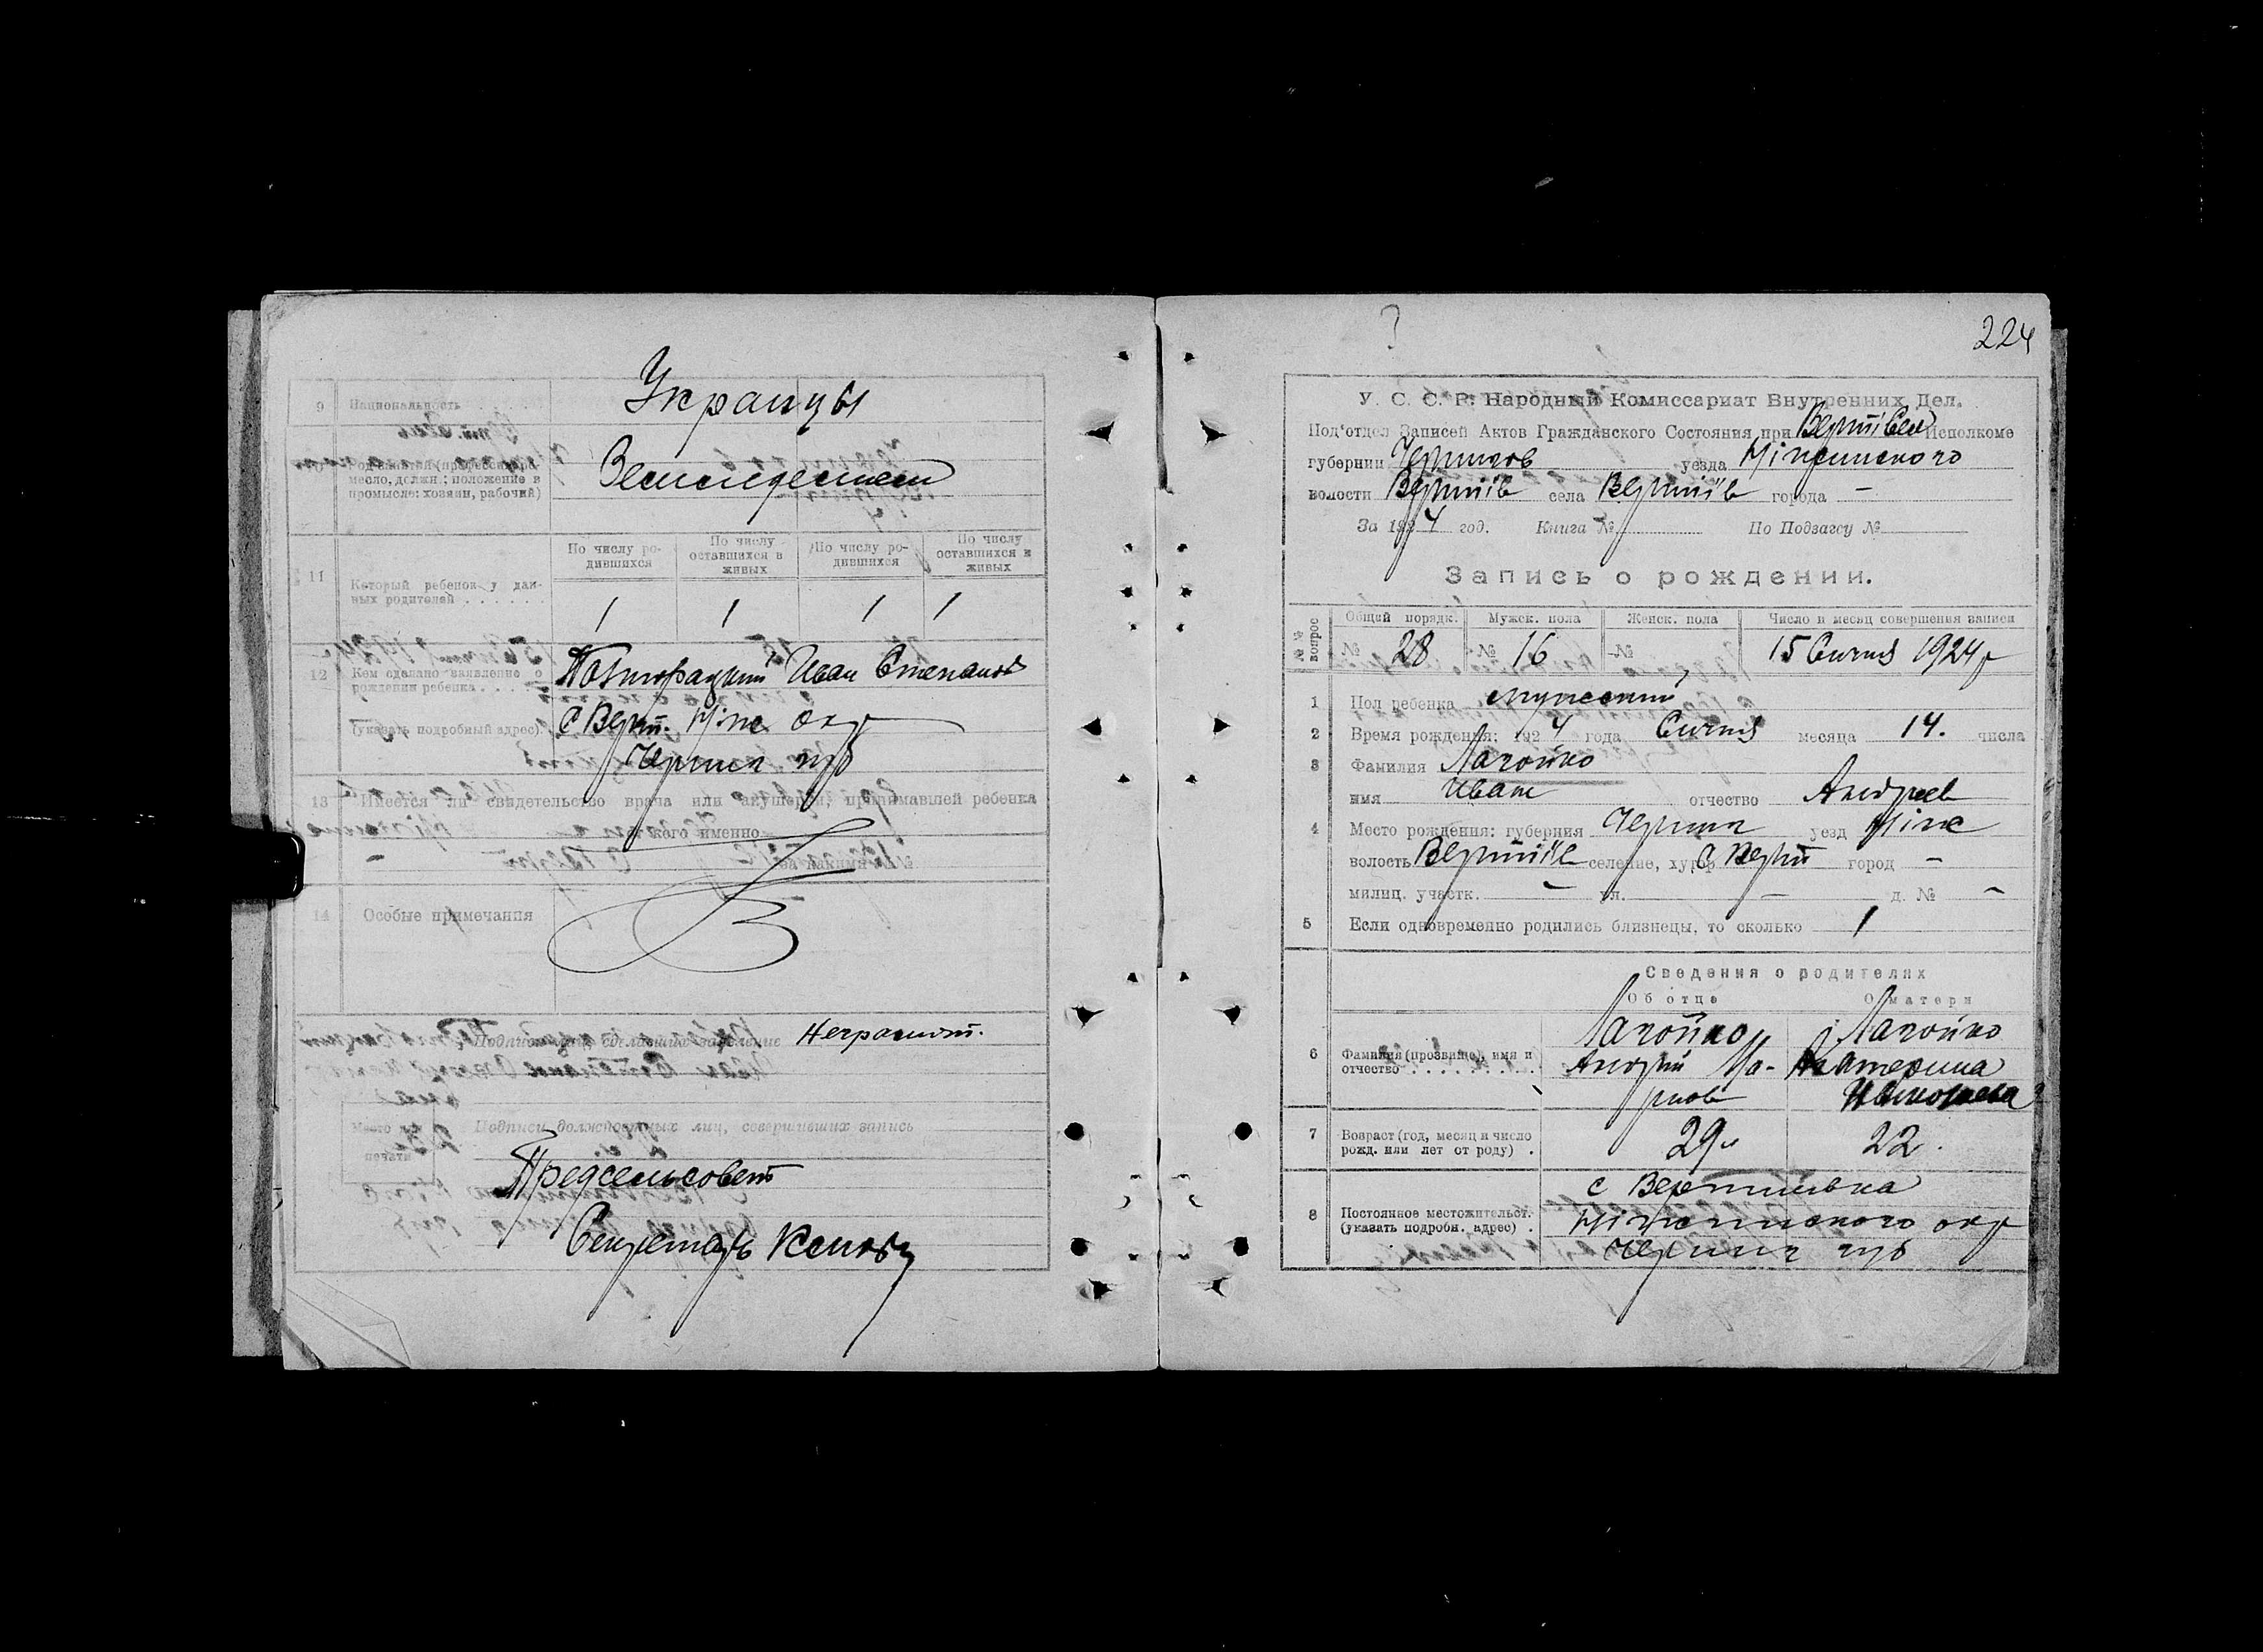 9 Национальность . . . . .
Украинцы
месло, должн.; положение в
промысле: хозяин, рабочий)
11
Который ребенок у дан-
ных родителей . . . . . . .
По числу ро-
дившихся
По числу
оставшихся в
живых
По числу ро-
дившихся
По числу
оставшихся в
живых
1 1 1 1
12 Кем сделано заявление о
рождении ребенка . . . . .
Иван Степанов
(указать подробный адрес).
с Верт. Ніж окр
Черниг губ
13 Имеется ли свидетельство врача или акушерки, принимавшей ребенка
от кого именно
за каким №
14 Особые примечания
Подпись лиц, сделавших заявление Неграмот.
Место
печати
Подписи должностных лиц, совершивших запись
Предсельсовет
Секретарь
?
224
У. С. С. Р. Народный Комиссариат Внутренних Дел.
Под'отдел Записей Актов Гражданского Состояния при Исполкоме
губернии Чернигов уезда Ніжинского
волости Вертіїв села Вертіїв города —
За 1924 год. Книга № По Подзагсу №
Запись о рождении.
№№ вопрос
Общий порядк. Мужск. пола Женск. пола Число и месяц совершения записи
№ 28 № 16 № 15 Січня 1924 р
1 Пол ребенка мужеский
2 Время рождения: 1924 года Січня месяца 14. числа
3 Фамилия Лагойко
имя Иван отчество Андреев
4 Место рождения: губерния Черниг уезд Ніж
волость Вертіїв селение, хутор с Верт город —
милиц. участк. — ул. — д. № —
5 Если одновременно родились близнецы, то сколько 1
Сведения о родителях
Об отце О матери
6 Фамилия (прозвище), имя и
отчество . . . . . . . . .
Лагойко Лагойко
Андрий Ма- Катерина
рков
7 Возраст (год, месяц и число
рожд. или лет от роду) .
29 22.
8 Постоянное местожительст.
(указать подробн. адрес) .
с Вертиевка
Ніжинского окр
Черниг губ